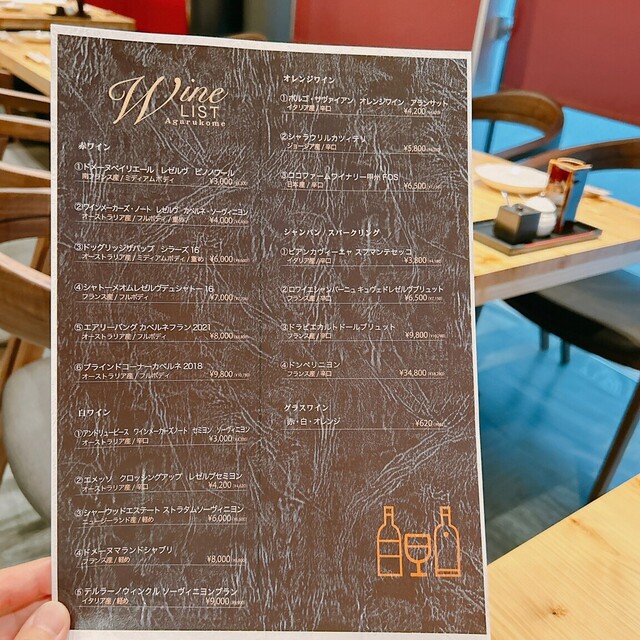 Wine
LIST
Agarukome
赤ワイン
①ドメーヌベイリエール レゼルヴ ピノノワール
南フランス産 / ミディアムボディ ¥3,000
②ワインメーカーズ・ノート レゼルヴ カベルネ・ソーヴィニヨン
オーストラリア産 / フルボディ / 重め ¥4,000
③ドッグリッジザパップ シラーズ 16
オーストラリア産 / ミディアムボディ / 重め ¥6,000
④シャトーメオムレゼルヴデュシャトー 16
フランス産 / フルボディ ¥7,000
⑤エアリーバンク カベルネフラン 2021
オーストラリア産 / フルボディ ¥8,000
⑥ブラインドコーナーカベルネ 2018
オーストラリア産 / フルボディ ¥9,800
白ワイン
①アンドリューピース ワインメーカーズノート セミヨン ソーヴィニヨン
オーストラリア産 / 辛口 ¥3,000
②エメッソ クロッシングアップ レゼルブセミヨン
オーストラリア産 / 辛口 ¥4,200
③シャーウッドエステート ストラタムソーヴィニヨン
ニュージーランド産 / 軽め ¥6,000
④ドメーヌマランドシャブリ
フランス産 / 軽め ¥8,000
⑤テルラーノウィンクル ソーヴィニヨンブラン
イタリア産 / 軽め ¥9,000
オレンジワイン
①ボルゴ・サヴァイアン オレンジワイン アランサット
イタリア産 / 辛口 ¥4,200
②シャラウリルカツィテリ
ジョージア産 / 辛口 ¥5,800
③ココファームワイナリー甲州 F.O.S
日本産 / 辛口 ¥6,500
シャンパン / スパークリング
①ビアンカヴィーニャ スプマンテセッコ
イタリア産 / 辛口 ¥3,800
②ロワイエシャンパーニュ キュヴェドレゼルブブリュット
フランス産 / 辛口 ¥6,500
③ドラピエカルトドールブリュット
フランス産 / 辛口 ¥9,800
④ドンペリニヨン
フランス産 / 辛口 ¥34,800
グラスワイン
赤・白・オレンジ ¥620